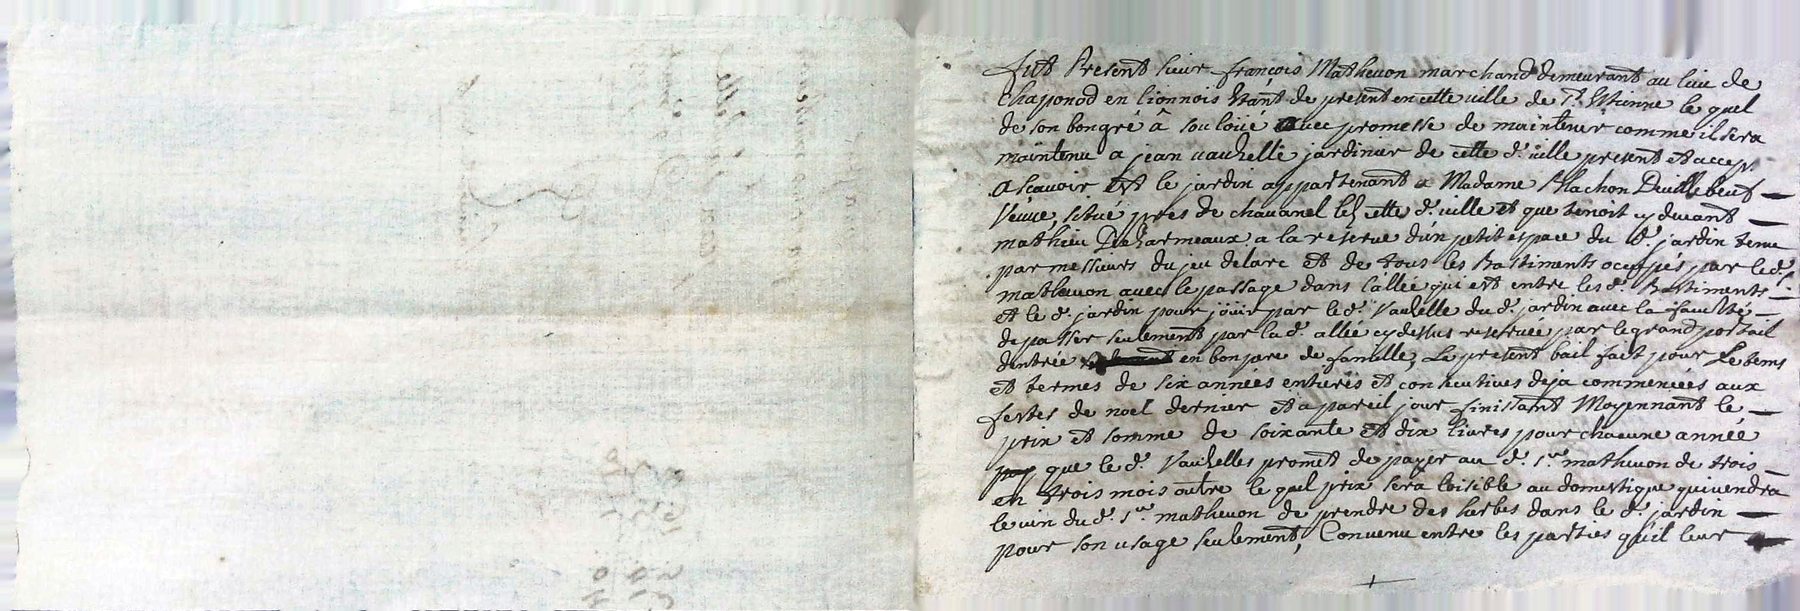 fut Present sieur françois Matheuon marchand demeurant au lieu de
chaponod en lionnois Etant de present en cette uille de St. Etienne le quel
de son bon gré â sou loüé auec promesse de maintenir comme il sera
maintenu a jean uauzelle jardinier de cette d. uille present et accep.
a scauoir Est le jardin appartenant a Madame Blachon Deuillebeuf
Veuue, situé pres de chauanel lez cette d. uille et que tenoit cy deuant
mathieu Desarmeaux a la reserue d'un petit espace du d. jardin tenu
par messieurs du jeu de l'arc et de tous les Bastiments occupés par le d.
matheuon auec le passage dans l'allée qui est entre les d. Bastiments
et le d. jardin pour joüir par le d. Vauzelle du d. jardin auec la faculté
de passer seulement par la d. allée cy dessus reseruée par le grand portail
dentrée en bon pere de famille, Le present bail fait pour Le tems
et termes de six années entieres et consecutiues deja commencées aux
festes de noel dernier et a pareil jour finissant Moyennant le
prix et somme de soixante et dix liures pour chacune année
que le d. Vauzelles promet de payer au d. sr. matheuon de trois
en trois mois outre le quel prix sera loisible au domestique qui uendra
le uin du d. sr. matheuon de prendre des herbes dans le d. jardin
pour son usage seulement, Conuenu entre les parties qu'il leur